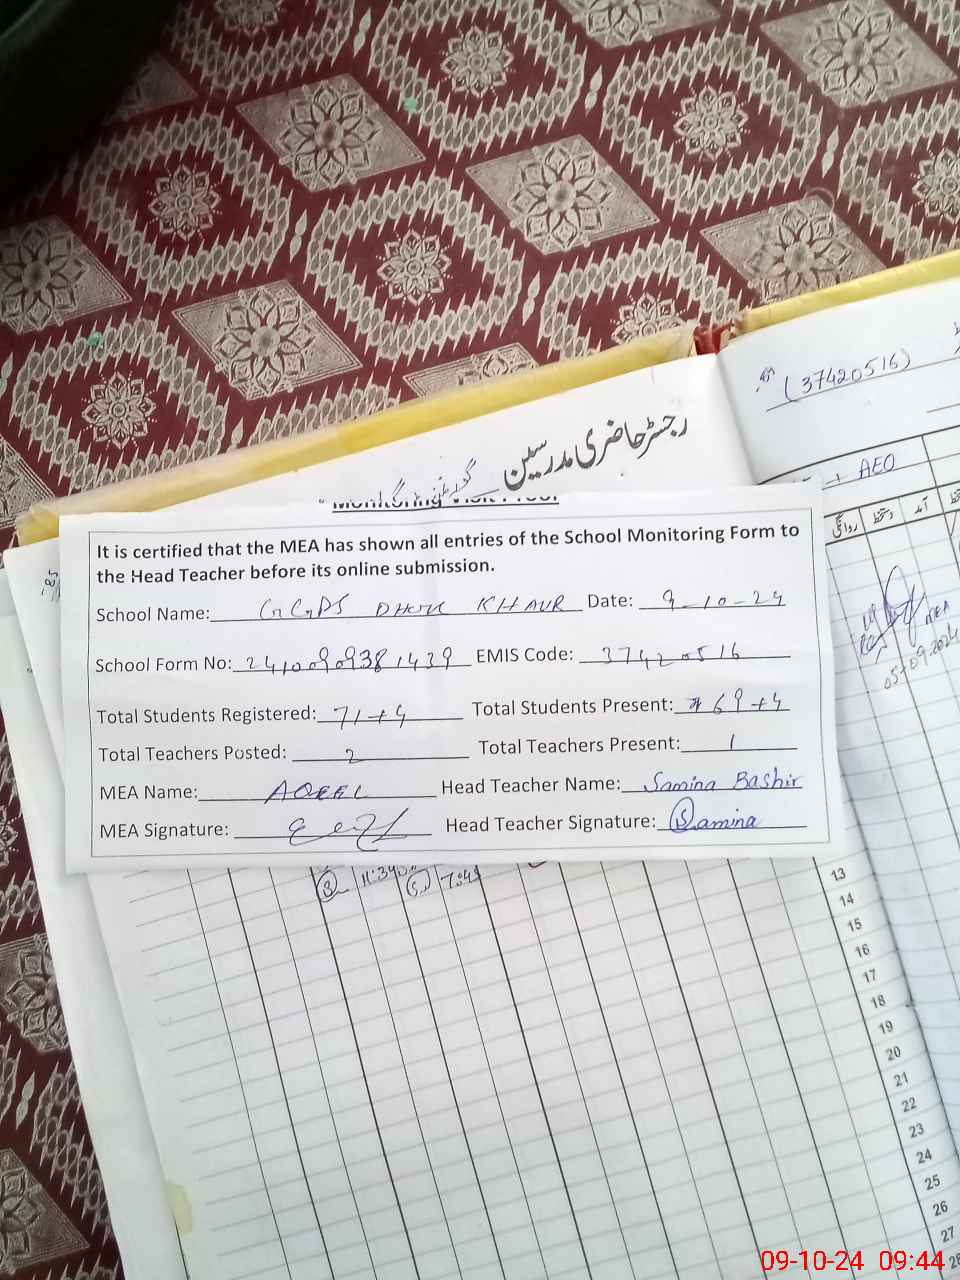 (37420516)
رجسٹر حاضری مدرسین
+ AEO
روانگی دستخط آمد
Monitoring Visit Proof
It is certified that the MEA has shown all entries of the School Monitoring Form to
the Head Teacher before its online submission.
School Name: GGPS DHOK KHAUR Date: 9-10-24
School Form No: 24100909381439 EMIS Code: 37420516
Total Students Registered: 71+4 Total Students Present: 69+4
Total Teachers Posted: 2 Total Teachers Present: 1
MEA Name: AQEEL Head Teacher Name: Samina Bashir
MEA Signature: Head Teacher Signature: Samina
MEA
05-09-2024
7:45
13
14
15
16
17
18
19
20
21
22
23
24
25
26
27
28
09-10-24 09:44